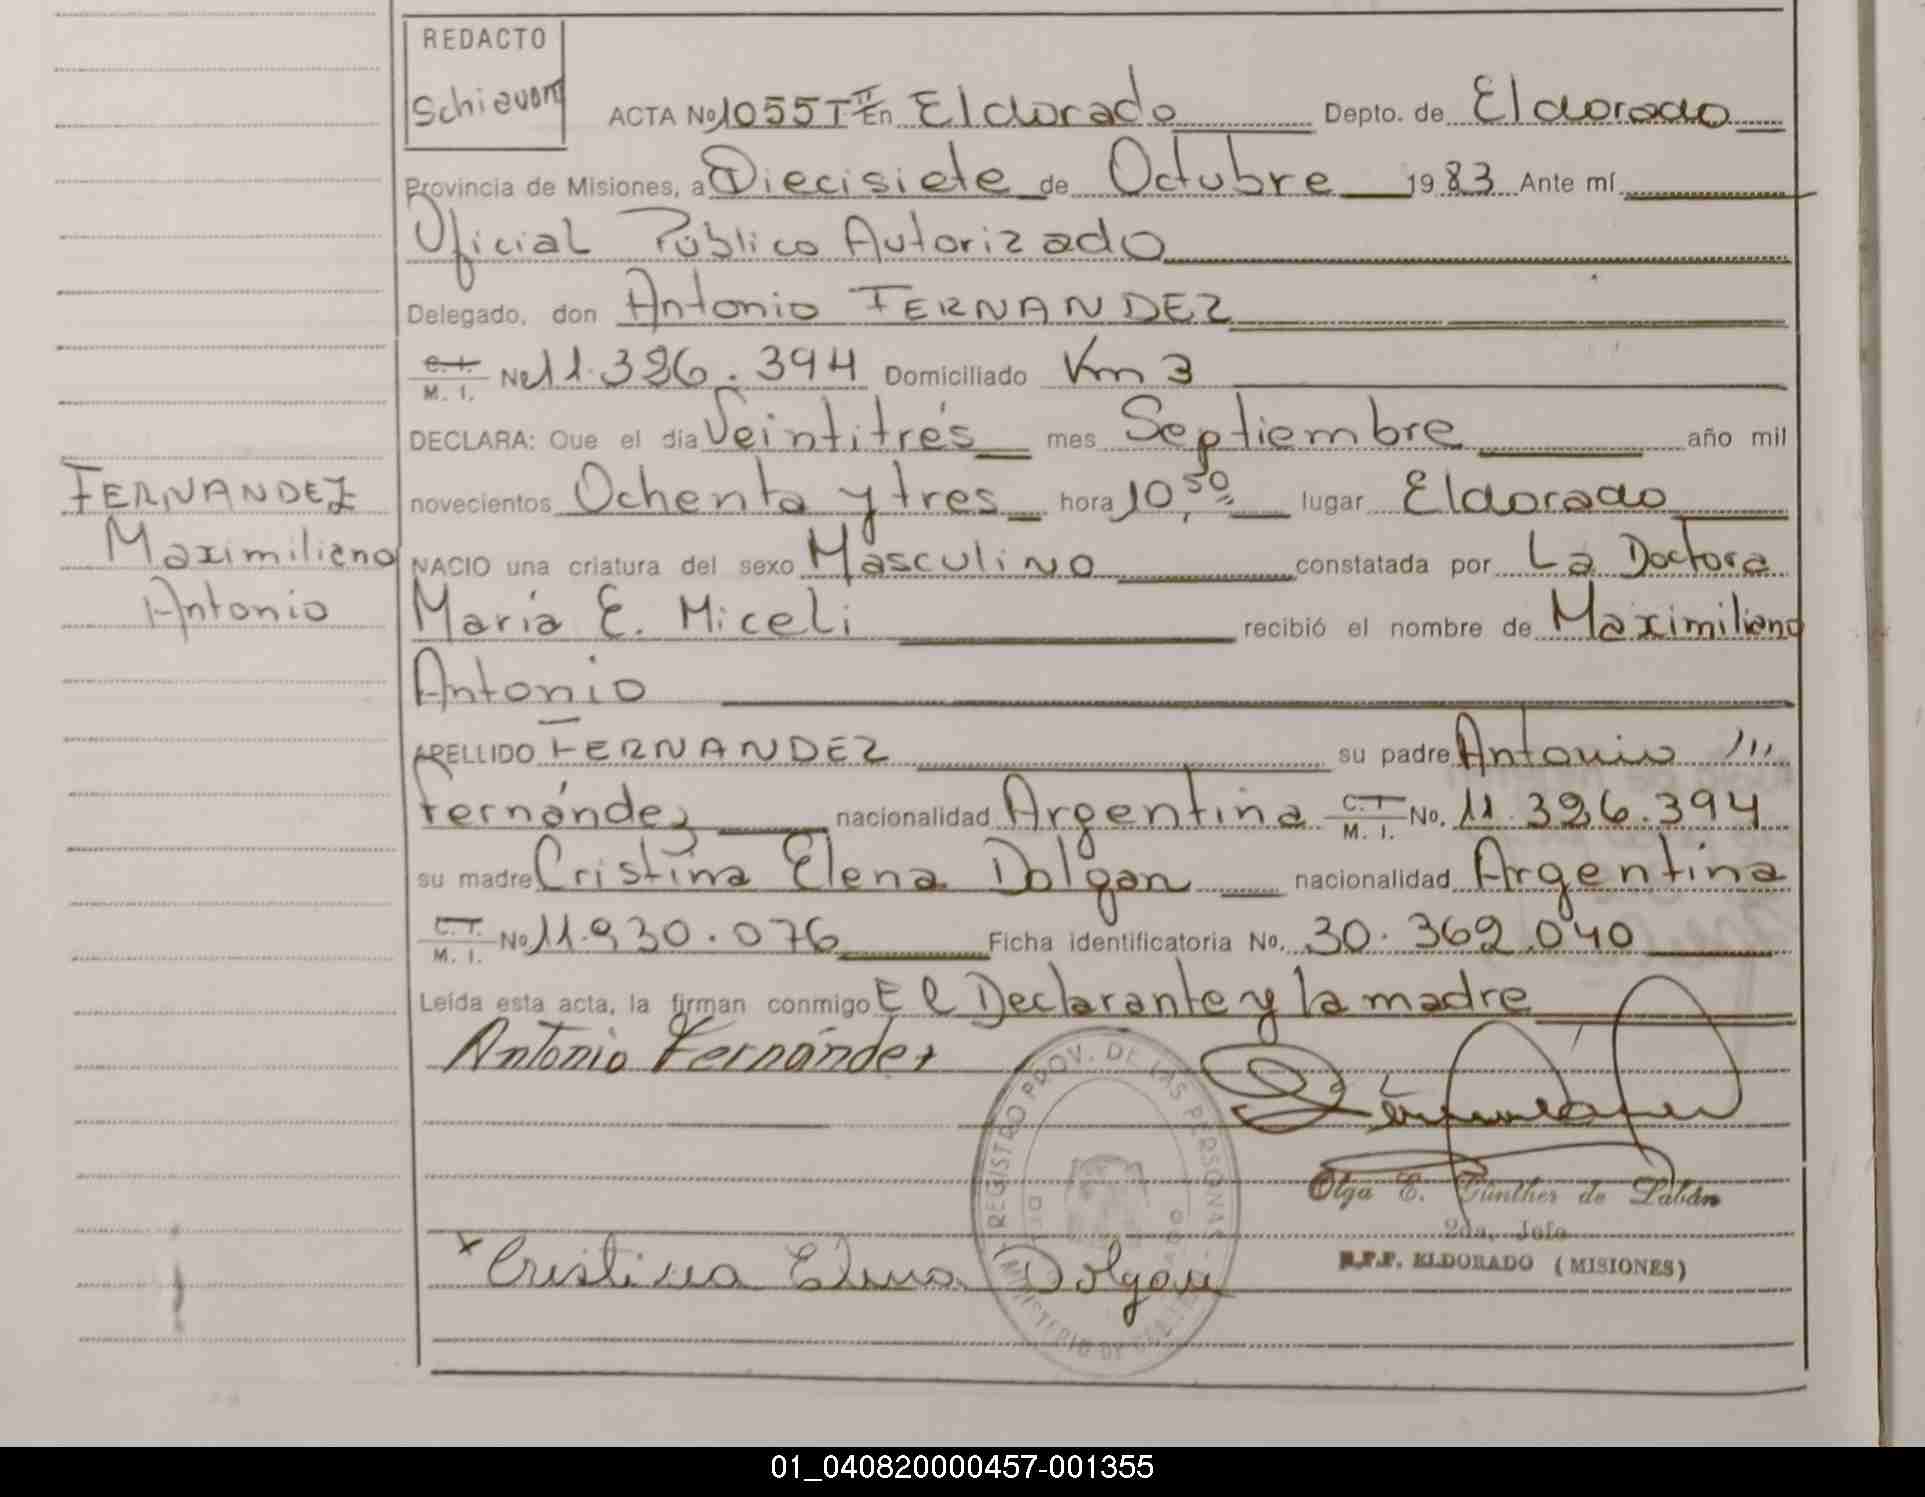 REDACTO
Schievoni
ACTA No 1055 T II En Eldorado Depto. de Eldorado
Provincia de Misiones, a Diecisiete de Octubre 1983 Ante mí
Oficial Público Autorizado
Delegado, don Antonio FERNANDEZ
C.I. M. I. No 11.326.394 Domiciliado Km 3
DECLARA: Que el día Veintitrés mes Septiembre año mil
novecientos Ochenta y tres hora 10,50 lugar Eldorado
NACIO una criatura del sexo Masculino constatada por La Doctora
María E. Miceli recibió el nombre de Maximiliano
Antonio
APELLIDO FERNANDEZ su padre Antonio
Fernández nacionalidad Argentina C.I. M. I. No. 11.326.394
su madre Cristina Elena Dolgan nacionalidad Argentina
C.I. M. I. No 11.930.076 Ficha identificatoria No. 30.362.040
Leída esta acta, la firman conmigo El Declarante y la madre
Antonio Fernández
REGISTRO PROV. DE LAS PERSONAS
MINISTERIO DE
Olga E. Günther de Labán
2da. Jefe
R.P.P. ELDORADO (MISIONES)
x Cristina Elena Dolgan
FERNANDEZ
Maximiliano
Antonio
01_040820000457-001355